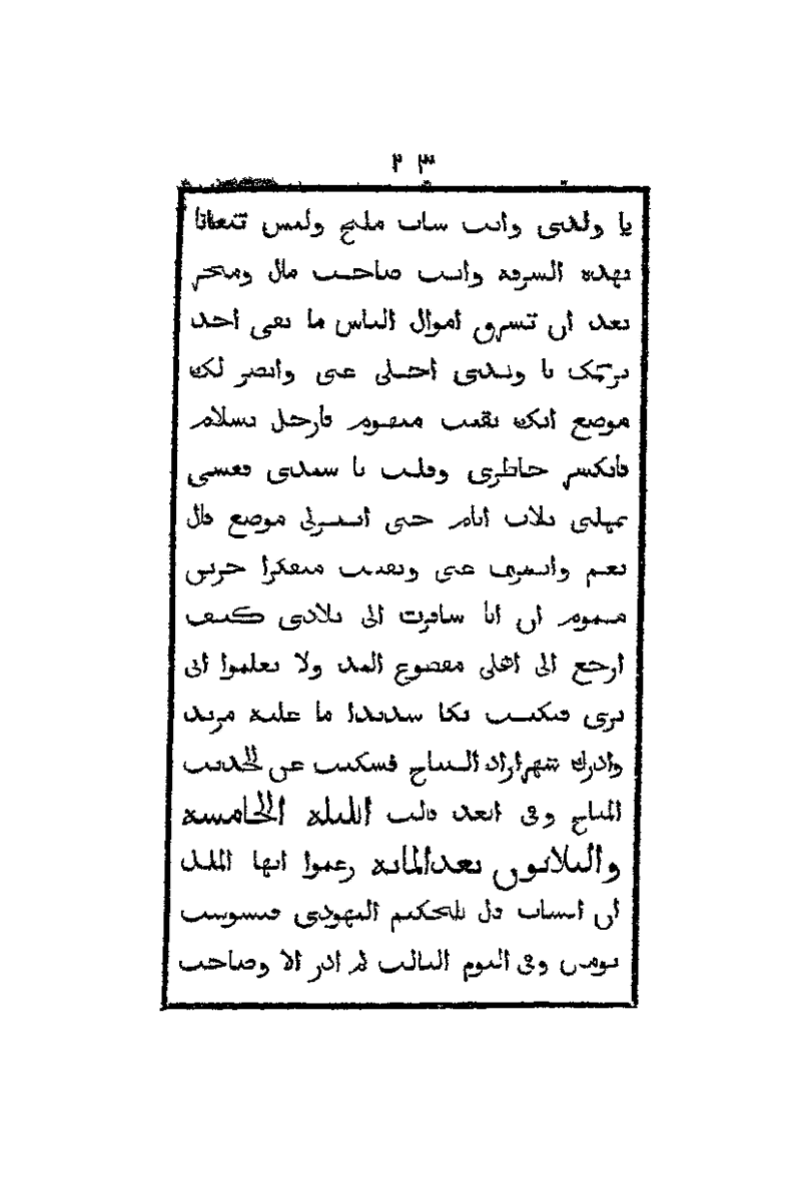 ٢٣
يا ولدى وانت شاب مليح وليس تتعانا
بهذه السرقه وانت صاحب مال ومتجر
بعد ان تسرق اموال الناس ما بقى احد
يرحمك يا ولدى اخلى عنى وابصر لك
موضع انك بقيت متهوم فارحل بسلام
فانكسر خاطرى وقلت يا سيدى فعسى
تمهلنى ثلاث ايام حتى ابصرلى موضع قال
نعم وانصرف عنى وبقيت متفكرا حزين
مهموم ان انا سافرت الى بلادى كيف
ارجع الى اهلى مقطوع اليد ولا يعلموا انى
برى فبكيت بكا شديدا ما عليه مزيد
وادرك شهرازاد الصباح فسكتت عن الحديث
المباح وفى الغد قالت الليلة الخامسة
والثلاثون بعدالماية زعموا ايها الملك
ان الشاب قال للحكيم اليهودى فتشوشت
يومين وفى اليوم الثالث لم ادر الا وصاحب